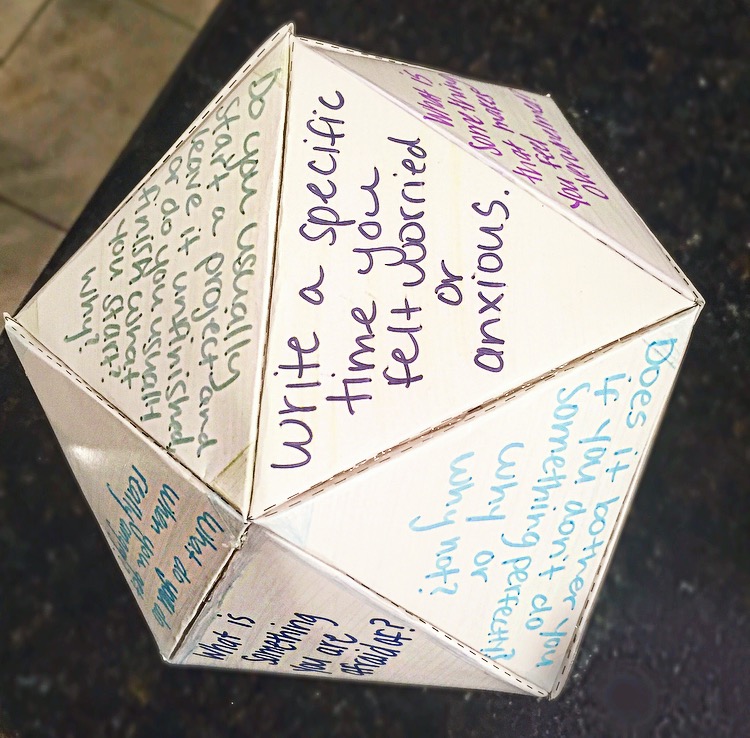 Do you usually
start a project and
leave it unfinished
or do you usually
finish what
you start?
Why?
Write a specific
time you
felt worried
or
anxious.
What is
something
that makes
you feel
Does it bother you
if you don't do
something perfectly?
Why or
why not?
What do you do
when you are
really
What is
something
you are
afraid of?